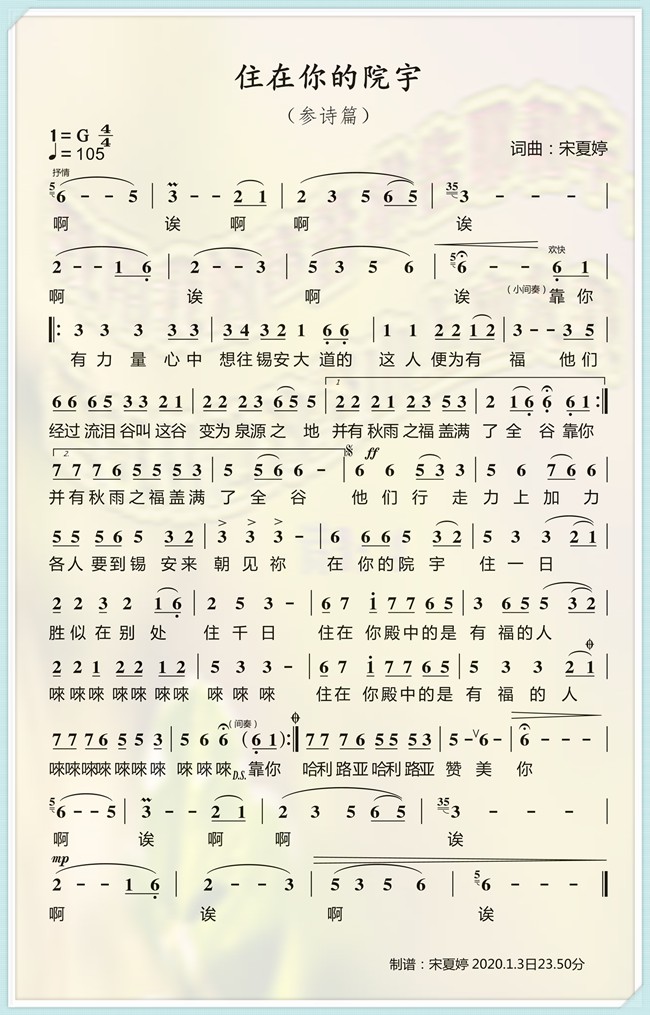 住在你的院宇
（参诗篇）
1=G 4/4
♩=105
词曲：宋夏婷
抒情
5 6 - - 5 | 3 - - 2 1 | 2 3 5 6 5 | 35 3 - - - |
啊 诶 啊 啊 诶
欢快
2 - - 1 6 | 2 - - 3 | 5 3 5 6 | 5 6 - - 6 1 |
啊 诶 啊 诶 （小间奏） 靠 你
‖: 3 3 3 3 3 | 3 4 3 2 1 6 6 | 1 1 2 2 1 2 | 3 - - 3 5 |
有 力 量 心 中 想往锡安大 道的 这 人 便为有 福 他 们
6 6 6 5 3 3 2 1 | 2 2 2 3 6 5 5 | 1. 2 2 2 1 2 3 5 3 | 2 1 6 6 6 1 :‖
经过 流泪 谷叫 这谷 变为 泉源 之 地 并有 秋雨 之福 盖满 了 全 谷 靠你
2. 7 7 7 6 5 5 5 3 | 5 5 6 6 - | 𝄋 ff 6 6 5 3 3 | 5 6 7 6 6 |
并有秋雨之福盖满 了 全 谷 他 们 行 走 力 上 加 力
5 5 5 6 5 3 2 | 3 3 3 - | 6 6 6 5 3 2 | 5 3 3 2 1 |
各人 要到锡 安来 朝 见 祢 在 你的院 宇 住 一 日
2 2 3 2 1 6 | 2 5 3 - | 6 7 i 7 7 6 5 | 3 6 5 5 3 2 |
胜 似 在 别 处 住 千 日 住在 你殿中的是 有 福的人
𝄌
2 2 1 2 2 1 2 | 5 3 3 - | 6 7 i 7 7 6 5 | 5 3 3 2 1 |
唻唻唻 唻唻唻唻 唻 唻 唻 住在 你殿中的是 有 福 的 人
（间奏） 𝄌
7 7 7 6 5 5 3 | 5 6 6 (6 1) :‖ 7 7 7 6 5 5 5 3 | 5 - ∨ 6 - | 6 - - - |
唻唻唻唻唻唻唻 唻 唻 唻 D.S. 靠你 哈利 路亚 哈利 路亚 赞 美 你
5 6 - - 5 | 3 - - 2 1 | 2 3 5 6 5 | 35 3 - - - |
啊 诶 啊 啊 诶
mp
2 - - 1 6 | 2 - - 3 | 5 3 5 6 | 5 6 - - - ‖
啊 诶 啊 诶
制谱：宋夏婷 2020.1.3日23.50分